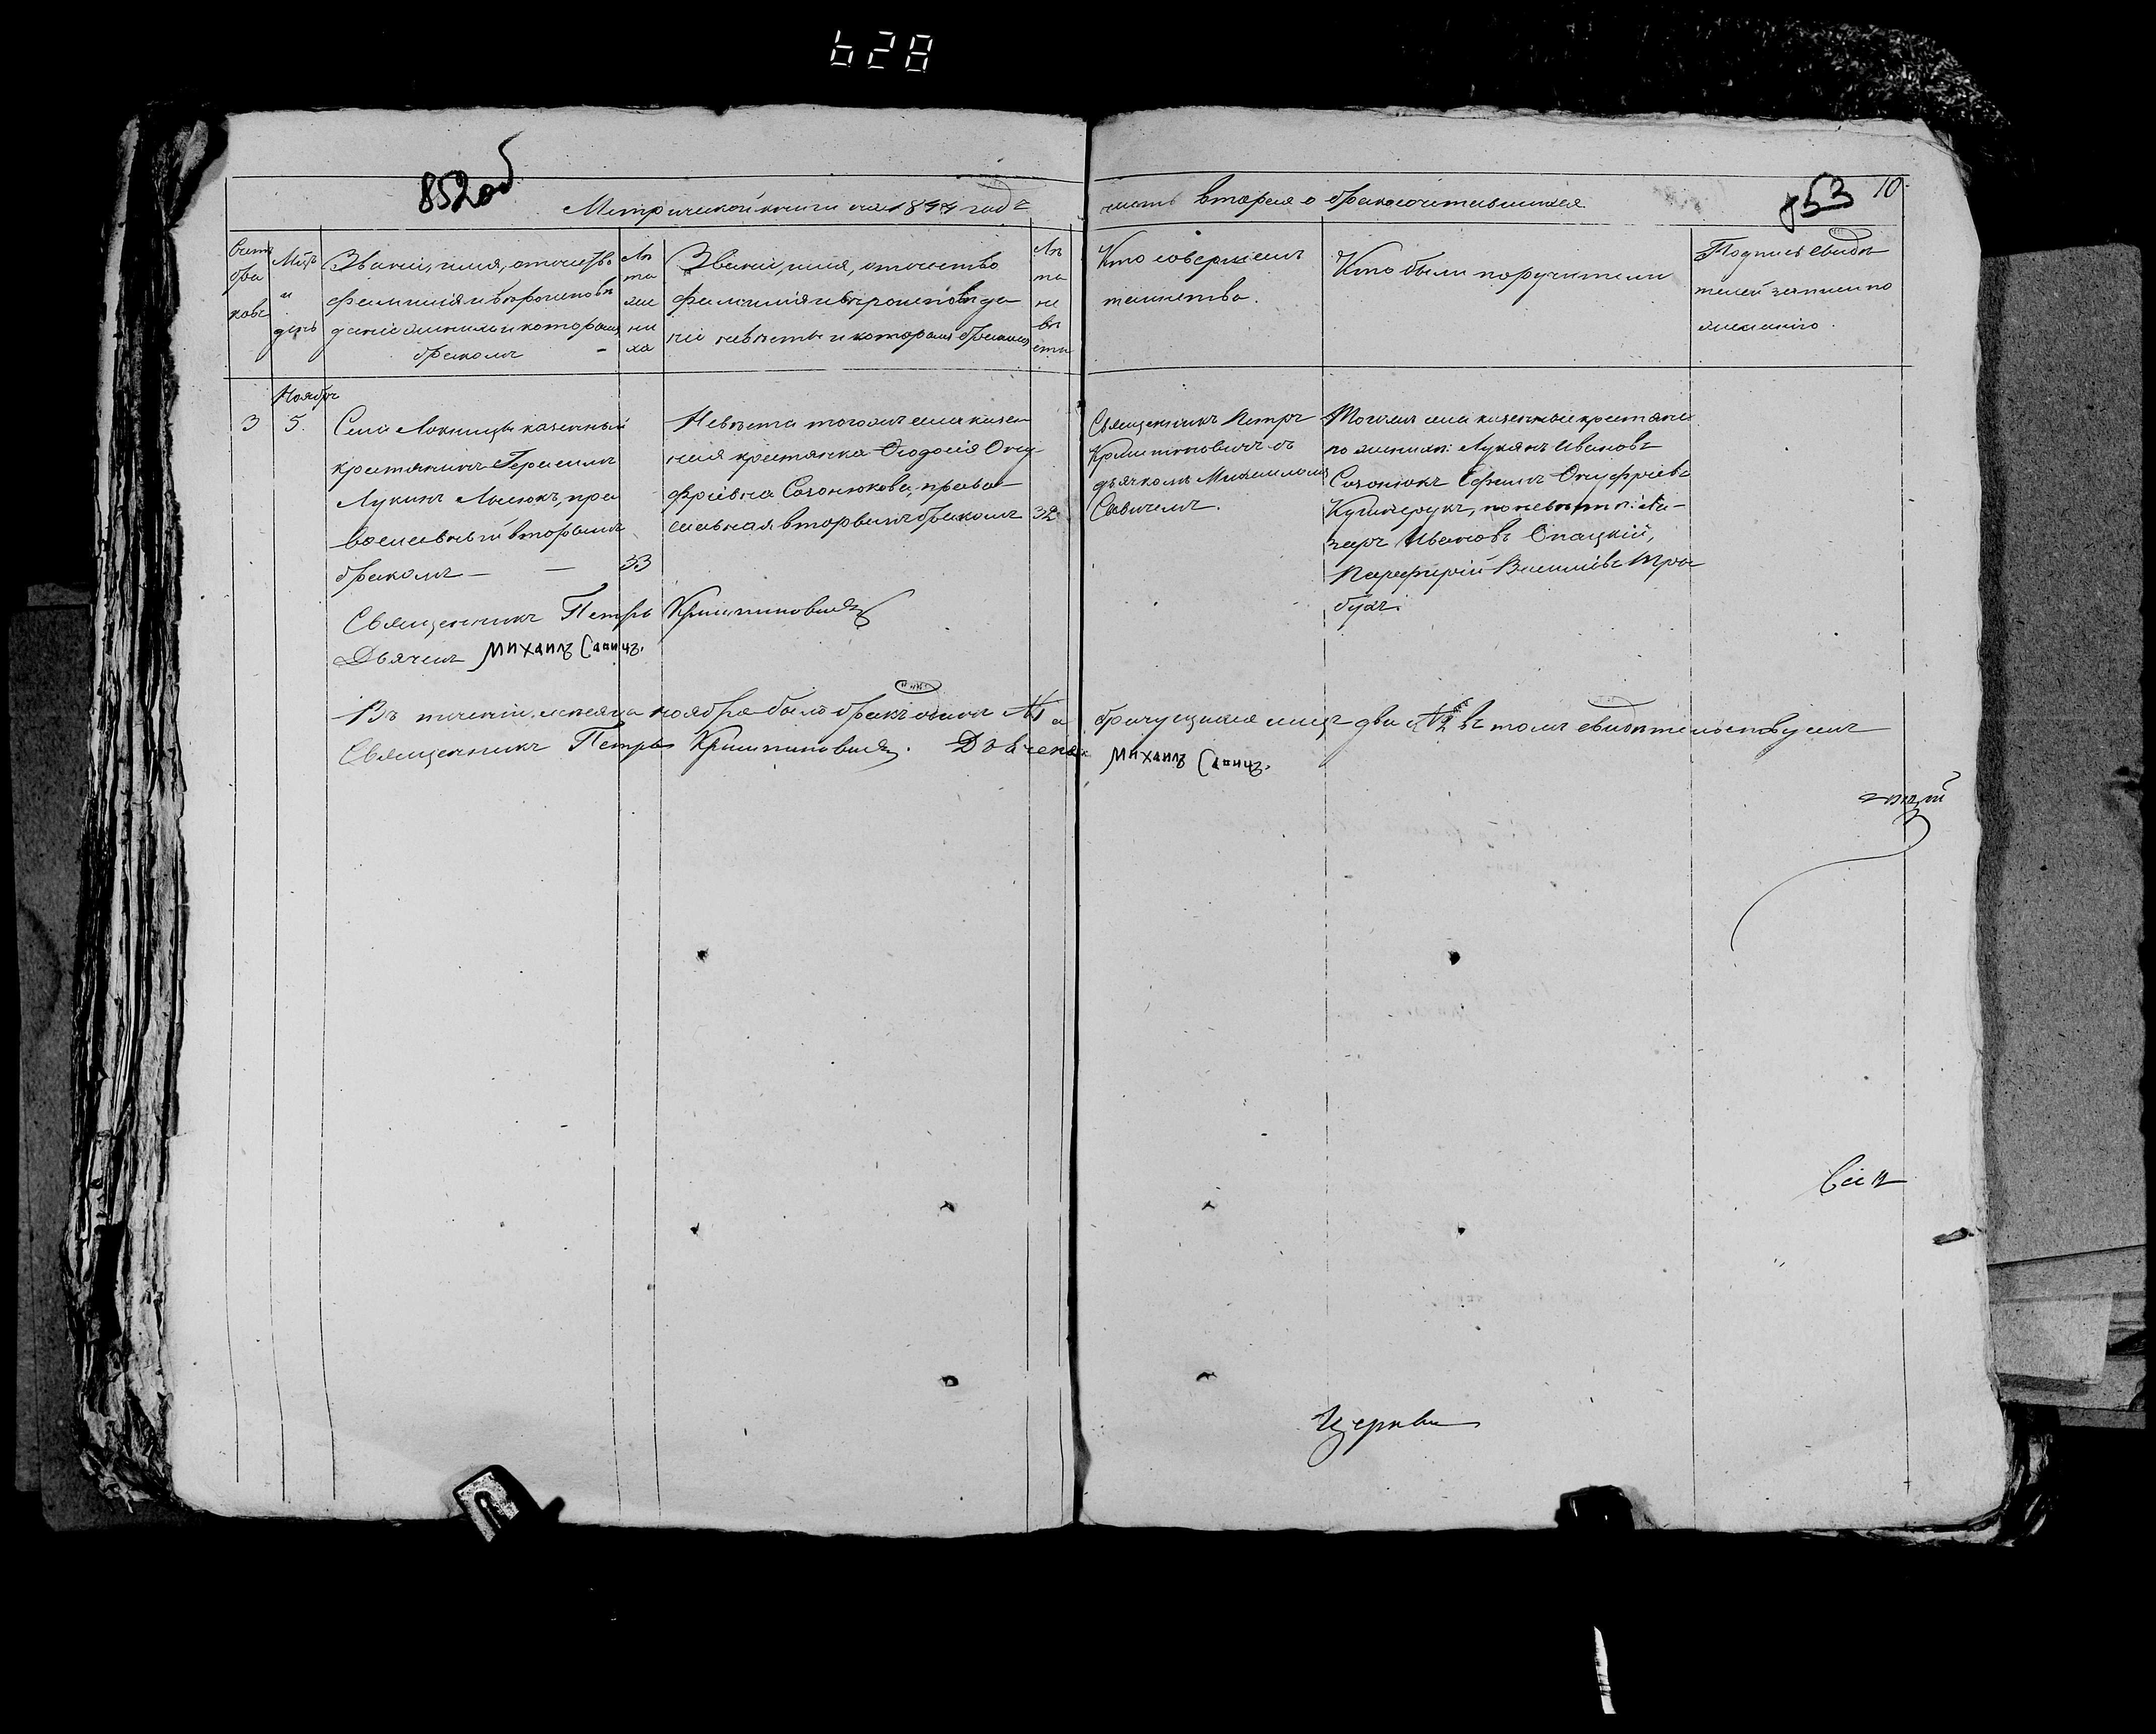 628
852об
853 10
Метрической книги на 1844 годъ
часть вторая о бракосочетавшихся
Счетъ браковъ
Мѣсъ и день
Званіе, имя, отечество
фамилія и вѣроисповѣ
даніе жениха и которымъ
бракомъ
Лѣта жениха
Званіе, имя, отечество
фамилія и вѣроисповѣда
ніе невѣсты и которымъ бракомъ
Лѣта невѣсты
Кто совершилъ
таинство.
Кто были поручители
Подпись свидѣ
телей записи по
желанію.
Ноябрь
3 5.
Села Локницы казенный
крестьянинъ Герасимъ
Лукинъ, пра
вославный вторымъ
бракомъ — — 33
Невѣста тогожъ села казен
ная крестьянка Феодосія Ону
фріевна Созонюкова, право
славная вторымъ бракомъ 32
Священникъ Петръ
Криштиновичъ съ
дьячкомъ Михаиломъ
Савичемъ.
Тогожъ села казенные крестьяне
по женихѣ: Лукянъ Ивановъ
Созонюкъ Ефимъ Онуфріевъ
Кушнерукъ, по невѣстѣ: На-
заръ Ивановъ Опацкій,
Парфирій Василіевъ Тро
бухъ.
Священникъ Петръ Криштиновичъ
Дьячекъ Михаилъ Савичъ.
Въ теченіи мѣсяца ноября былъ бракъ одинъ №1 а брачущихся лицъ два №2 въ томъ свидѣтельствуемъ
Священникъ Петръ Криштиновичъ. Дьячекъ Михаилъ Савичъ.
Церкви